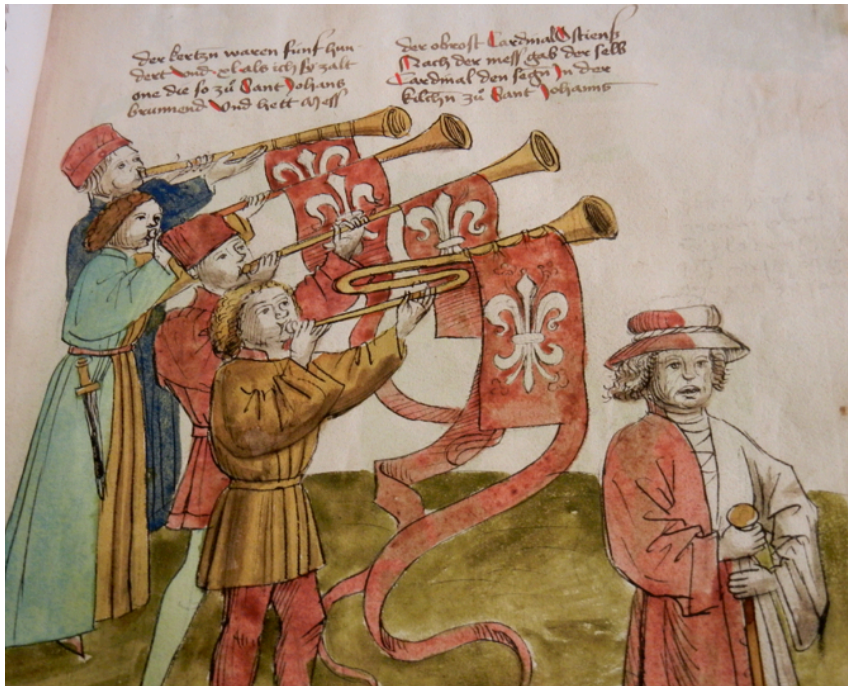 der kertzn waren fünf hun
dert vnd xl als ich sÿ zalt
one die so zů Sant Johans
brunnend Vnd hett Mess
der obrost Cardinal Ostiens
Nach der mess gab der selb
Cardinal den segn In der
kilchn zů Sant Johanns